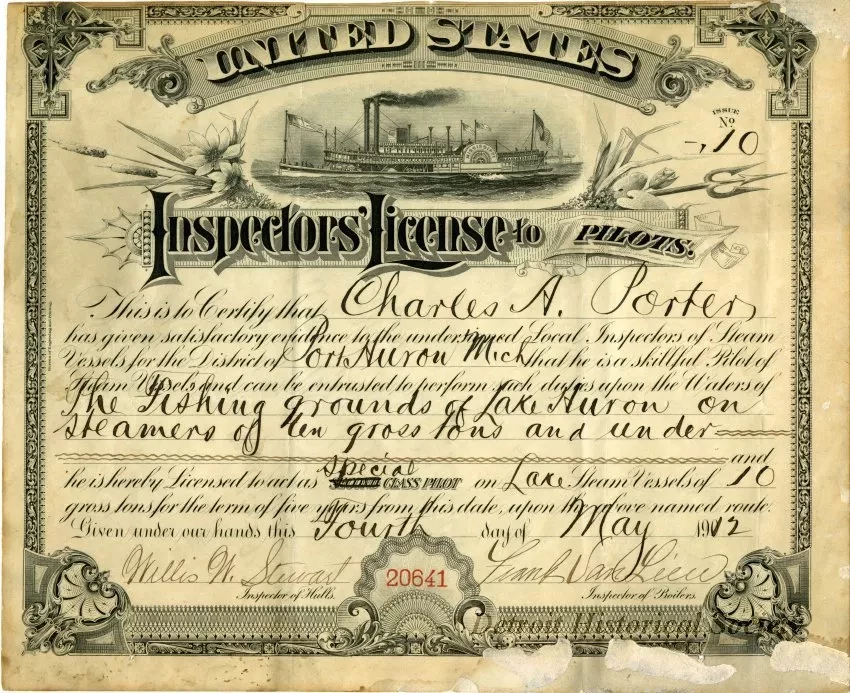 UNITED STATES
ISSUE
No
10
INSPECTORS' LICENSE to PILOTS.
This is to Certify that Charles A. Porter
has given satisfactory evidence to the undersigned Local Inspectors of Steam
Vessels for the District of Port Huron Mich that he is a skillful Pilot of
Steam Vessels and can be entrusted to perform such duties upon the Waters of
The Fishing grounds of Lake Huron on
steamers of ten gross tons and under
and
he is hereby Licensed to act as special CLASS PILOT on Lake Steam Vessels of 10
gross tons for the term of five years from this date, upon the above named route.
Given under our hands this Fourth day of May 1912
Willis W. Stewart 20641 Frank Van Liew
Inspector of Hulls. Inspector of Boilers.
Detroit Historical Society